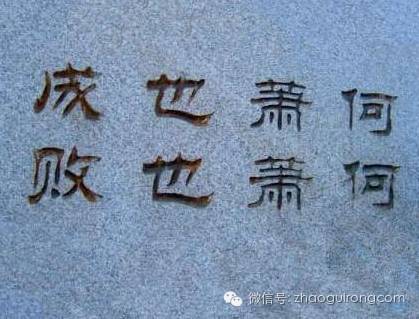 成也萧何
败也萧何
微信号: zhaoguirong.com